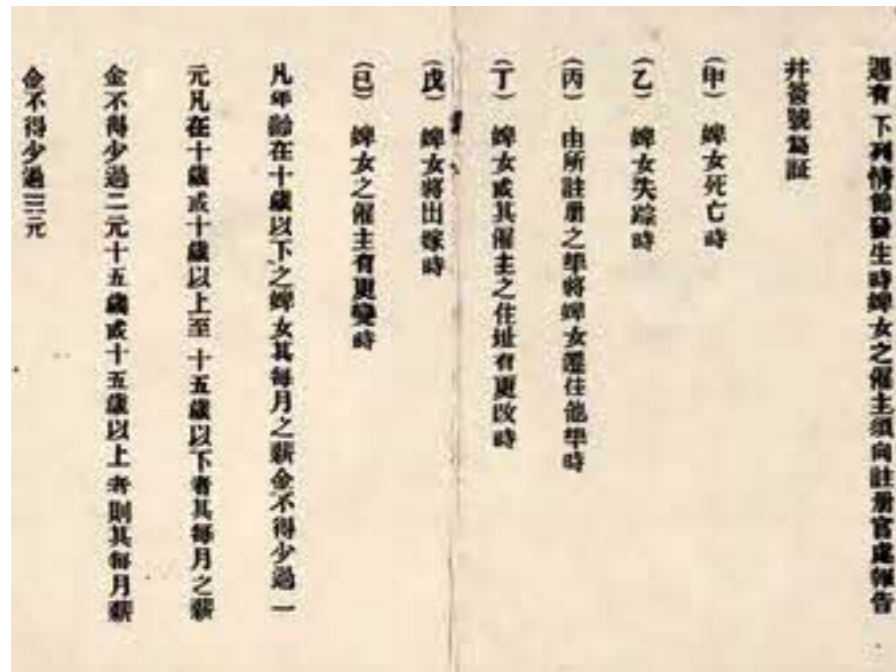 遇有下列情節發生時婢女之僱主須向註册官處報告
并簽號為証
(甲) 婢女死亡時
(乙) 婢女失踪時
(丙) 由所註册之埠將婢女遷住他埠時
(丁) 婢女或其僱主之住址有更改時
(戊) 婢女將出嫁時
(已) 婢女之僱主有更變時
凡年齡在十歲以下之婢女其每月之薪金不得少過一
元凡在十歲或十歲以上至十五歲以下者其每月之薪
金不得少過二元十五歲或十五歲以上者則其每月薪
金不得少過三元